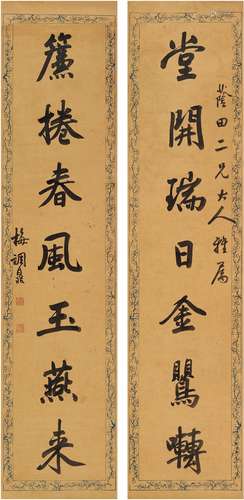 堂開瑞日金鶯囀
蔭田二兄大人雅屬
簾捲春風玉燕来
梅調鼎